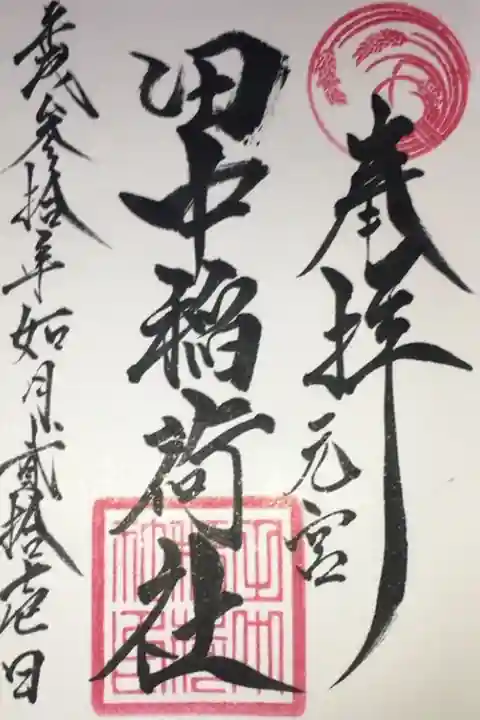 奉拝
元宮
田中稲荷社
平成参拾年如月貳拾壱日